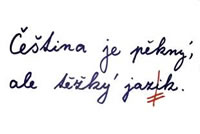 Čeština je pěkný,
ale těžký jazik.